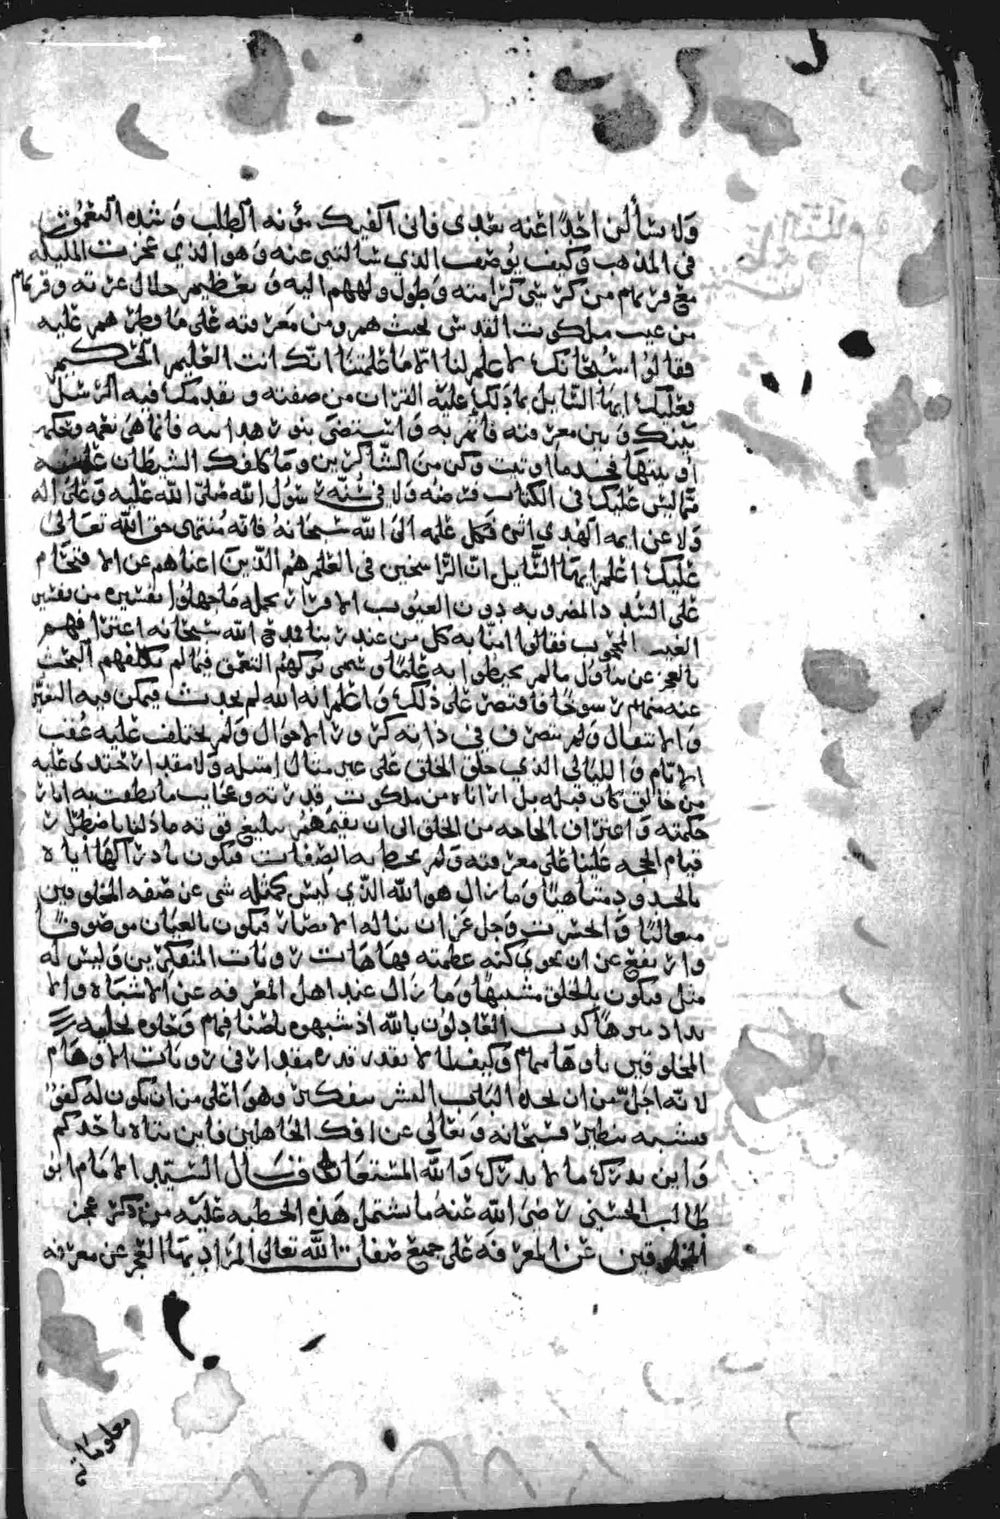 ولا تسألن احدًا عنه بعدي فاني اكفيك مؤنه الطلب وشده التعمق
في المذهب وكيف يوصف الذي سالتني عنه وهو الذي عجزت المليكه
مع قربهم من كرسي كرامته وطول ولههم اليه وتعظيم جلال عزته وقربهم
من غيب ملكوت القدس بحيث هم ومن معرفته على ما فطرهم عليه
فقالوا سبحانك لا علم لنا الا ما علمتنا انك انت العليم الحكيم
فعليك ايها السايل بما دلك عليه القران من صفته وتقدمك فيه الرسل
بينك وبين معرفته فاتمر به واستضئ بنور هدايته فانما هي نعمه وحكمه
اوتيتها فخذ ما اوتيت وكن من الشاكرين وما كلفك الشيطان علمه
مما ليس عليك في الكتاب فرضه ولا في سنه رسول الله صلى الله عليه وعلى اله
ولا عن ايمه الهدى اثره فكل علمه الى الله سبحانه فانه منتهى حق الله تعالى
عليك اعلم ايها السايل ان الراسخين في العلم هم الذين اغناهم عن الاقتحام
على السدد المضروبه دون الغيوب الاقرار بجمله ما جهلوا تفسيره من تفسير
الغيب المحجوب فقالوا امنا به كل من عند ربنا فمدح الله سبحانه اعترافهم
بالعجز عن تناول ما لم يحيطوا به علمًا وسمى تركهم التعمق فيما لم يكلفهم البحث
عنه منهم رسوخًا فاقتصر على ذلك واعلم انه الله لم يحدث فيمكن فيه التغير
والانتقال ولم يتصرف في ذاته كرور الاحوال ولم يختلف عليه عقب
الايام والليالي الذي خلق الخلق على غير مثال امتثله ولا مقدار احتذى عليه
من خالق كان قبله بل ارانا من ملكوت قدرته وعجايب ما نطقت به اثار
حكمته واعتراف الحاجه من الخلق الى ان يقيمهم بمبلغ قوته ما دلنا باضطرار
قيام الحجه علينا على معرفته ولم تحط به الصفات فيكون بادراكها اياه
بالحدود متناهيًا وما زال هو الله الذي ليس كمثله شي عن صفه المخلوقين
متعاليًا وانحسرت وجل عز ان تناله الابصار فيكون بالعيان موصوفًا
وارتفع عن ان تحوي كنه عظمته فهاهات رويات المتفكرين وليس له
مثل فيكون بالخلق مشبهًا وما زال عند اهل المعرفه عن الاشباه والا
نداد منزهًا كذب العادلون بالله اذ شبهوه باصنافهم وحلوه بحليه
المخلوقين باوهامهم وكيف لما لا يقدر قدره مقدار في رويات الاوهام
لانه اجل من ان تحده الباب البشر بتفكير وهو اعلى من ان يكون له كفو
فيشبه بنظير فسبحانه وتعالى عن افك الجاهلين فاين يتاه باحدكم
واين يدرك ما لا يدرك والله المستعان قال السيد الامام ابو
طالب الحسني رضي الله عنه ما يشتمل هذه الخطبه عليه من ذكر عجز
المخلوقين عن المعرفه على جميع صفات الله تعالى المراد بها العجز عن معرفه
معلوماته